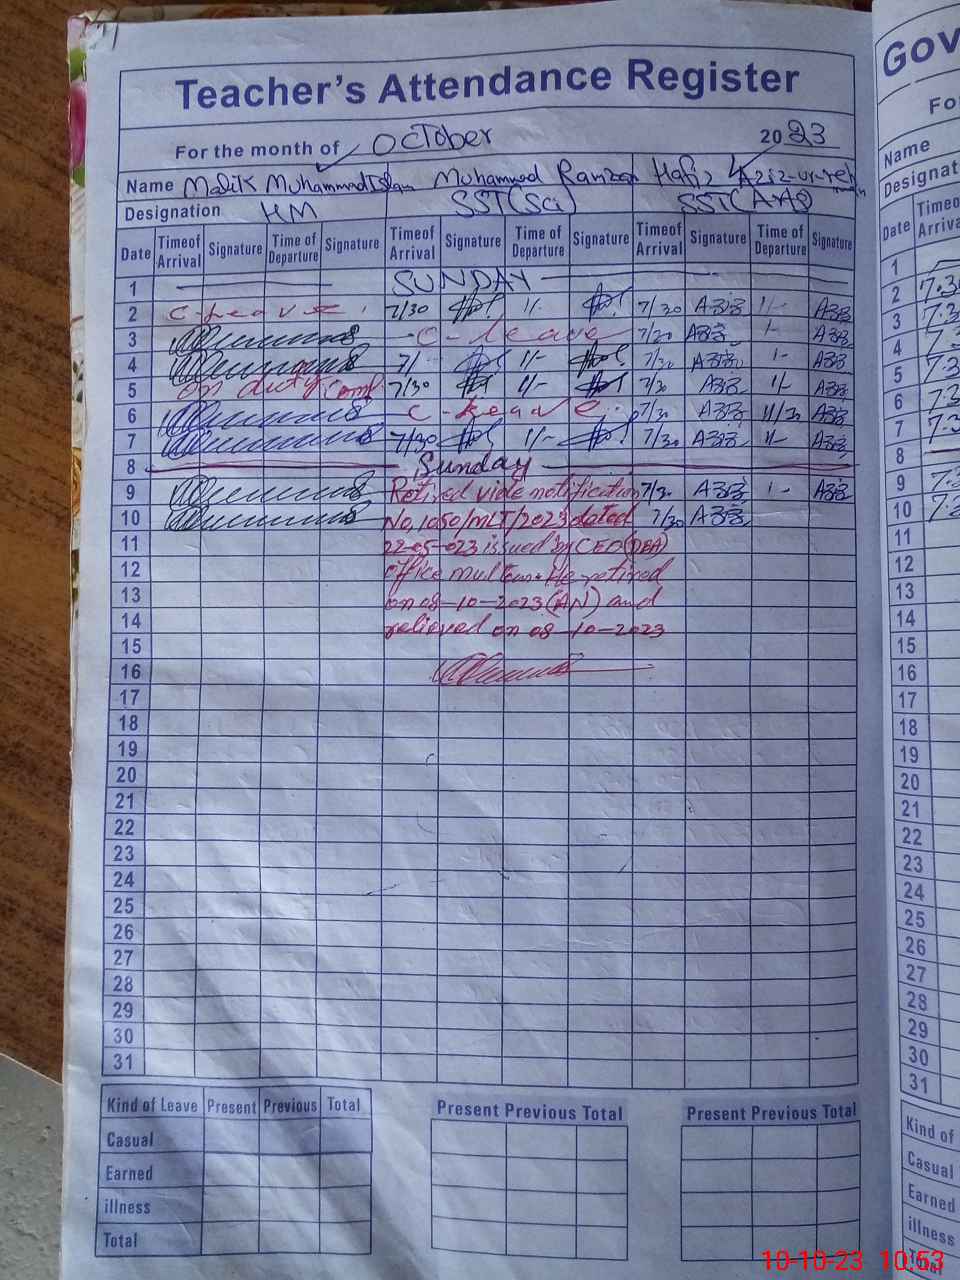 Teacher's Attendance Register
For the month of October 2023
Name Malik Muhammad Islam Muhammad Ramzan Hafiz Aziz-ur-reh
Designation HM SST(Sci) SST(A
Date Time of Arrival Signature Time of Departure Signature Time of Arrival Signature Time of Departure Signature Time of Arrival Signature Time of Departure Signature
1 SUNDAY
2 C-Leave 7/30 1/- 7/30 1/-
3 C-leave 7/30 1-
4 7/- 1/- 7/30 1-
5 on duty 7/30 1/- 7/30 1/-
6 C-Leave 7/30 1/30
7 7/30 1/- 7/30 1/-
8 Sunday
9 Retired vide notification 7/30 1-
10 No, 1050/MLT/2023 dated 7/30
11 22-05-023 issued by CEO (DEA)
12 office multan. He retired
13 on 08-10-2023 (AN) and
14 relieved on 08-10-2023
15
16
17
18
19
20
21
22
23
24
25
26
27
28
29
30
31
Kind of Leave Present Previous Total Present Previous Total Present Previous Total
Casual
Earned
illness
Total
Gov
Fo
Name
Designat
Date Time o Arriva
1
2 7.30
3 7.3
4 7.3
5 7.3
6 7.3
7 7.3
8
9 7.3
10 7.2
11
12
13
14
15
16
17
18
19
20
21
22
23
24
25
26
27
28
29
30
31
Kind of
Casual
Earned
illness
Total
10-10-23 10:53